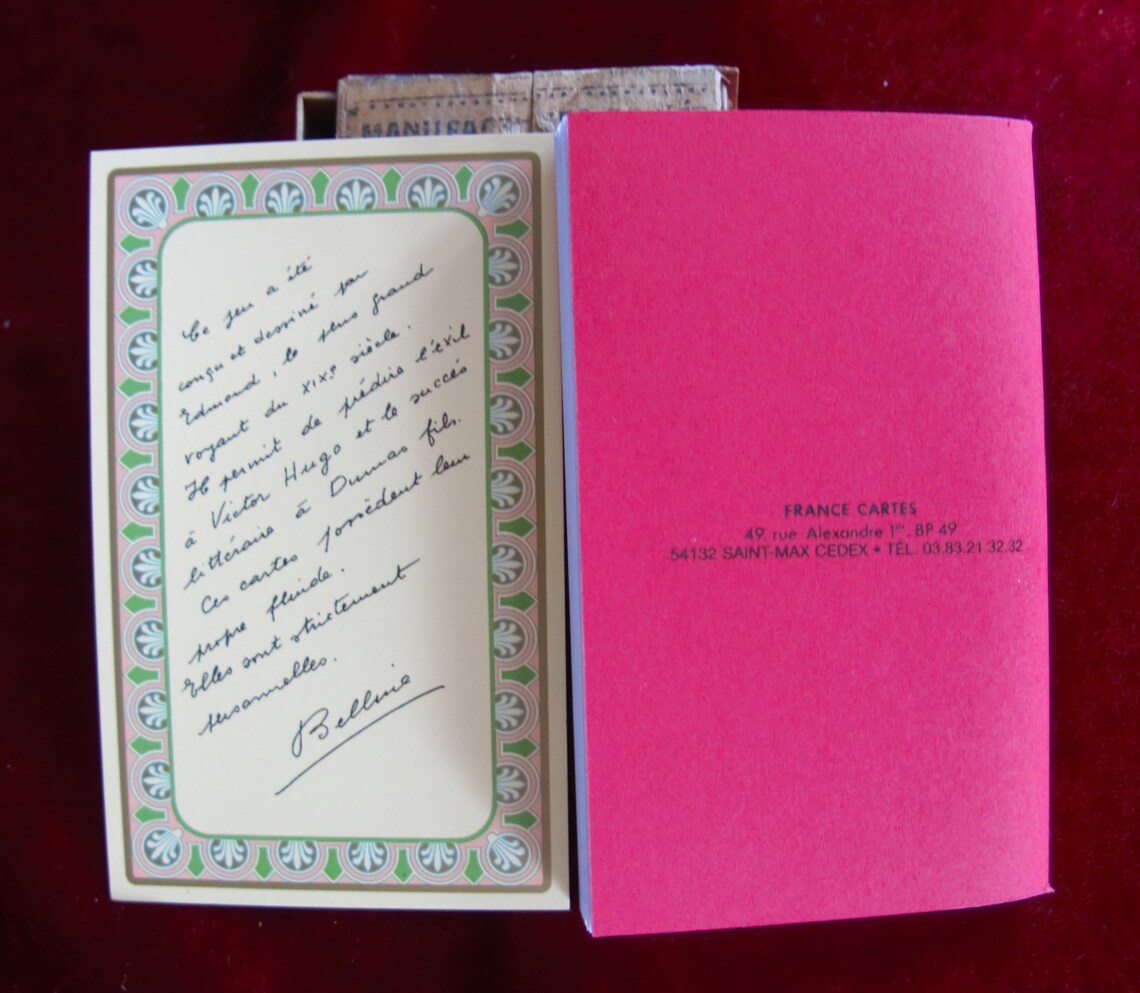 MANUFAC
Ce jeu a été
conçu et dessiné par
Edmond, le plus grand
voyant du XIXe siècle.
Il permit de prédire l'éxil
à Victor Hugo et le succés
littéraire à Dumas fils.
Ces cartes possèdent leur
propre fluide.
Elles sont strictement
personnelles.
Belline
FRANCE CARTES
49, rue Alexandre 1er, BP 49
54132 SAINT-MAX CEDEX • TÉL. 03.83.21.32.32